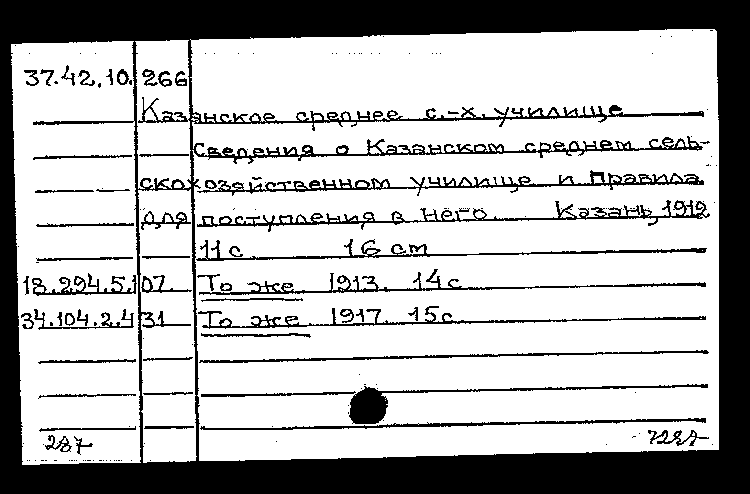 37.42.10.266
Казанское среднее с.-х. училище
Сведения о Казанском среднем сель-
скохозяйственном училище и Правила
для поступления в него. Казань, 1912
11 с 16 см
18.294.5.107. То же 1913. 14 с
34.104.2.431 То же 1917. 15 с
287